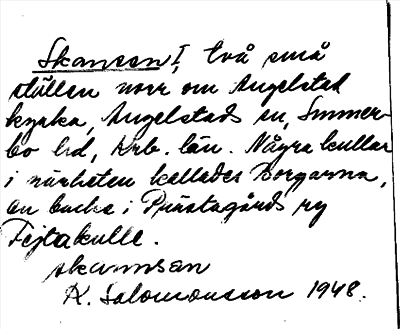 Skansen I, två små
ställen norr om Angelstad
kyrka, Angelstads sn, Sunner-
bo hd, Krb. län. Några kullar
i närheten kallades Borgarna,
en backe i Prästagårds ry
Fejtakulle.
skannsen
K. Salomonsson 1948.